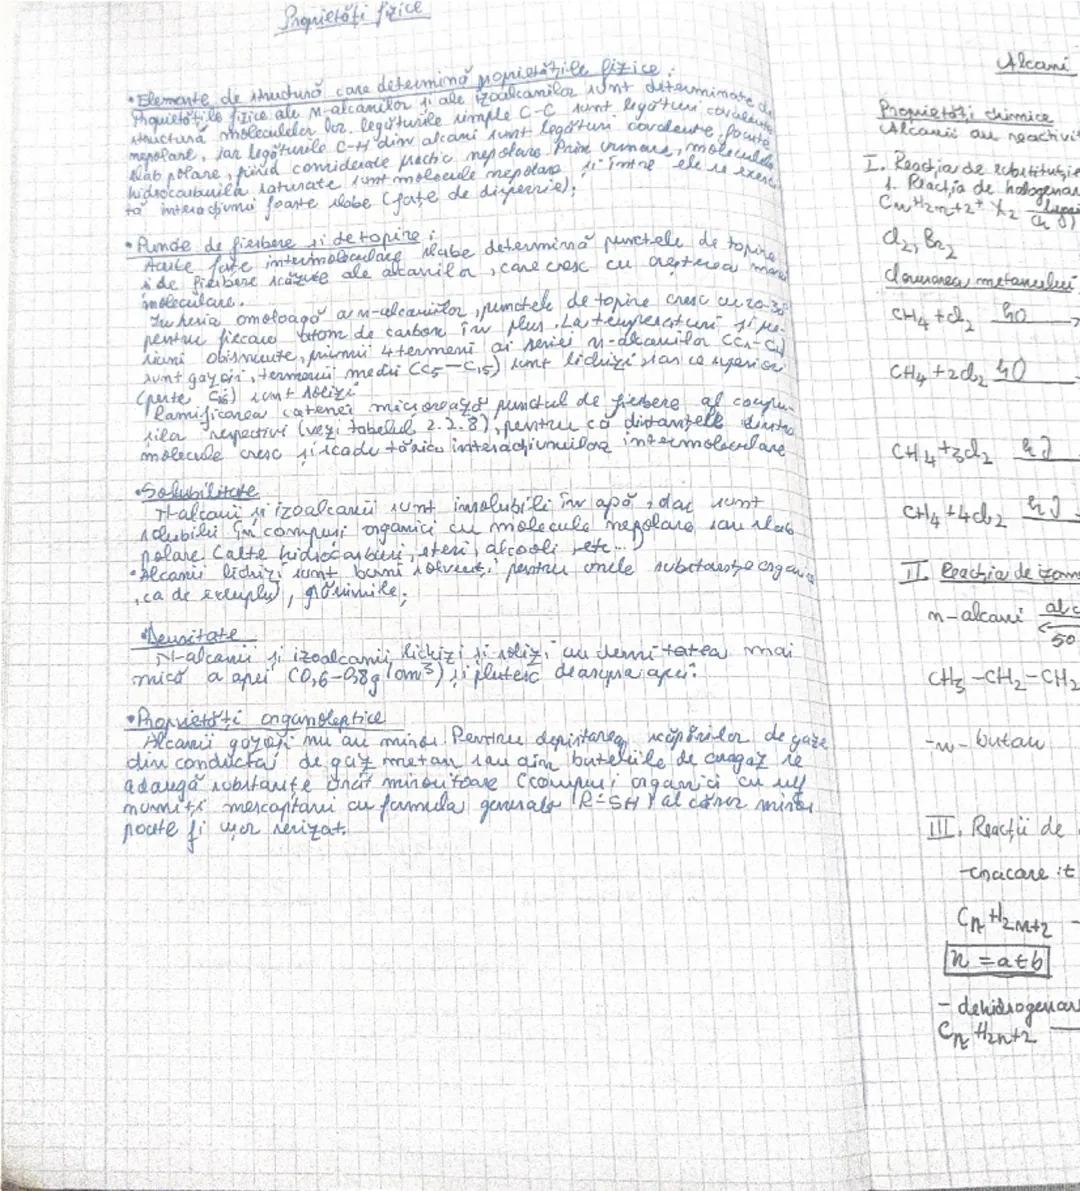 Proprietăți fizice
• Elemente de structură care determină proprietățile fizice:
Proprietățile fizice ale n-alcanilor și ale izoalcanilor sunt determinate de
structura moleculelor lor. legăturile simple C-C sunt legături covalente
nepolare, iar legăturile C-H din alcani sunt legături covalente foarte
slab polare, fiind considerate practic nepolare. Prin urmare, moleculele
hidrocarburilă saturate sunt molecule nepolare și între ele se exerci-
tă interacțiuni foarte slabe (forțe de dispersie);
• Puncte de fierbere și de topire:
Aceste forțe intermoleculare slabe determină punctele de topire
și de fierbere scăzute ale alcanilor, care cresc cu creșterea masei
moleculare.
În seria omoloagă a n-alcanilor, punctele de topire cresc cu 20-30
pentru fiecare atom de carbon în plus. La temperaturi și pre-
siuni obișnuite, primii 4 termeni ai seriei n-alcanilor (C1-C4)
sunt gazoși, termenii medii (C5-C15) sunt lichizi iar ce superiori
(peste C16) sunt solizi
Ramificarea catenei micșorează punctul de fierbere al compu-
silor respectivi (vezi tabelul 2.2.8), pentru că distanțele dintre
molecule cresc și scade tăria interacțiunilor intermoleculare
• Solubilitate
N-alcanii și izoalcanii sunt insolubili în apă, dar sunt
solubili în compuși organici cu molecule nepolare sau slab
polare (alte hidrocarburi, eteri, alcooli, etc...)
• Alcanii lichizi sunt buni solvenți pentru unele substanțe organice
, ca de exemplu, grăsimile;
• Densitate
N-alcanii și izoalcanii, lichizi și solizi au densitatea mai
mică a apei (0,6-0,8g/cm³) și plutesc deasupra apei.
• Proprietăți organoleptice
Alcanii gazoși nu au miros. Pentru depistarea scăpărilor de gaze
din conductai de gaz metan sau din buteliile de aragaz se
adaugă substanțe urât mirositoare (compuși organici cu sulf
numiți mercaptani cu formula generală R-SH) al căror miros
poate fi ușor sesizat.
Alcani
Proprietăți chimice
Alcanii au reactivit
I. Reacția de substituție
1. Reacția de halogenar
CnH2n+2 + X2
Cl2, Br2
clorurarea metanului
CH4 + Cl2 hν
CH4 + 2Cl2 hν
CH4 + 3Cl2 hν
CH4 + 4Cl2 hν
II. Reacția de izom
n-alcani alc
50
CH3-CH2-CH2
-n-butan
III. Reacții de
-cracare :t
CnH2n+2
n = a+b
- dehidrogenar
CnH2n+2